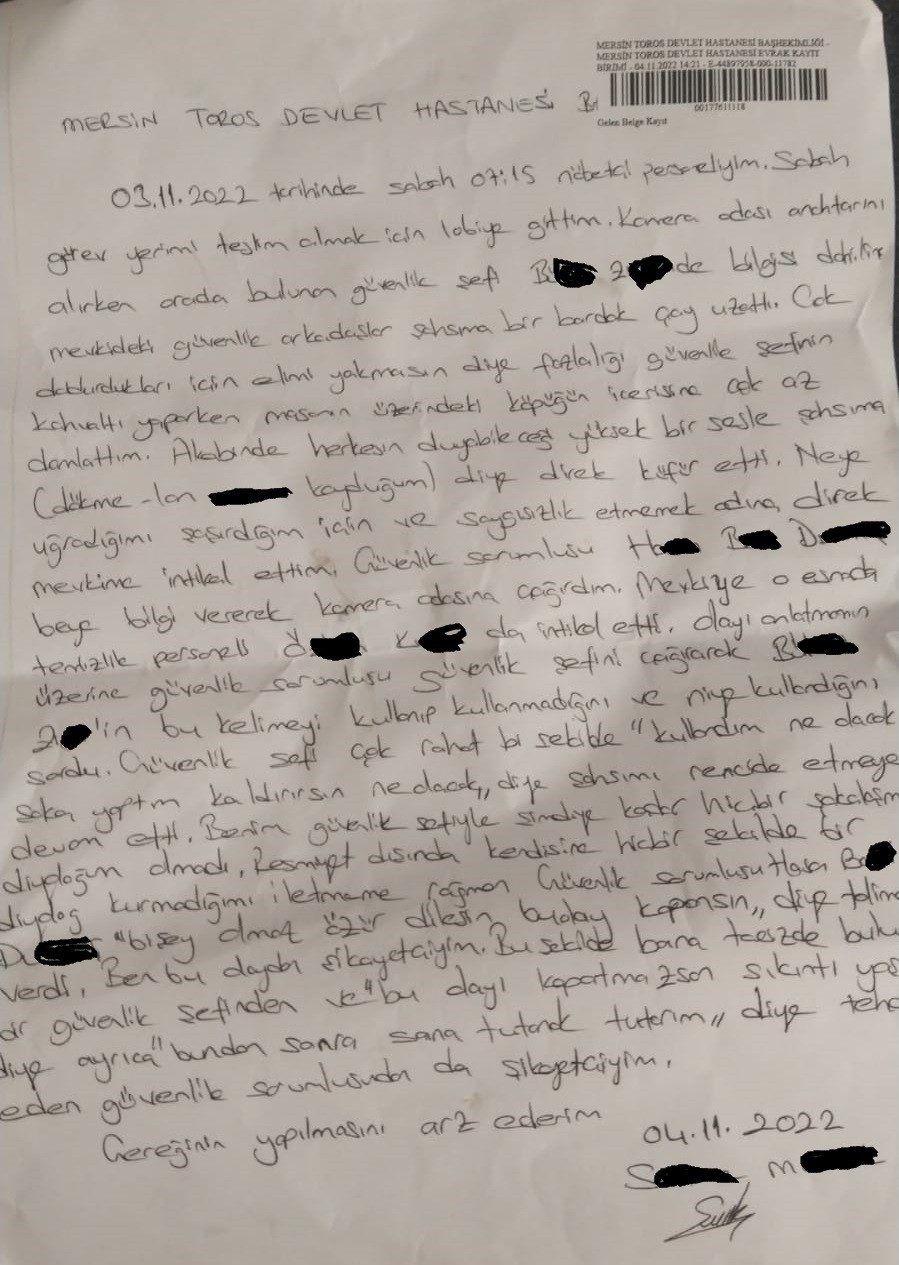 MERSİN TOROS DEVLET HASTANESİ BAŞHEKİMLİĞİ -
MERSİN TOROS DEVLET HASTANESİ EVRAK KAYIT
BİRİMİ - 04.11.2022 14:21 - E-44897958-000-11782
00177611118
Gelen Belge Kayıt
MERSİN TOROS DEVLET HASTANESİ
03.11.2022 tarihinde sabah 07:15 nöbetçi personeliyim. Sabah
görev yerimi teslim almak için lobiye gittim. Kamera odası anahtarını
alırken orada bulunan güvenlik şefi B de bilgisi dahilin
mevkideki güvenlik arkadaşlar şahsıma bir bardak çay uzattı. Çok
doldurdukları için elimi yakmasın diye fazlalığı güvenlik şefinin
kahvaltı yaparken masanın üzerindeki köpüğün içerisine çok az
damlattım. Akabinde herkesin duyabileceği yüksek bir sesle şahsıma
(dökme lan koyduğum) diye direk küfür etti. Neye
uğradığımı şaşırdığım için ve saygısızlık etmemek adına direk
mevkime intikal ettim. Güvenlik sorumlusu H B D
beye bilgi vererek kamera odasına çağırdım. Mevkiye o esnada
temizlik personeli Ö K da intikal etti. Olayı anlatmamın
üzerine güvenlik sorumlusu güvenlik şefini çağırarak B
'in bu kelimeyi kullanıp kullanmadığını ve niye kullandığını
sordu. Güvenlik şefi çok rahat bi şekilde "kullandım ne olacak
şaka yaptım kaldırırsın ne olacak,, diye şahsımı rencide etmeye
devam etti. Benim güvenlik şefiyle şimdiye kadar hiçbir şakalaşm
diyaloğum olmadı. Resmiyet dışında kendisine hiçbir şekilde bir
diyalog kurmadığımı iletmeme rağmen Güvenlik sorumlusu Hasan B
D "bişey olmaz özür dilesin bu olay kapansın,, diye talima
verdi. Ben bu olaydan şikayetçiyim. Bu şekilde bana tacizde bulu
güvenlik şefinden ve "bu olayı kapatmazsan sıkıntı yaş
diye ayrıca "bundan sonra sana tutanak tutarım,, diye tehd
eden güvenlik sorumlusundan da şikayetçiyim.
Gereğinin yapılmasını arz ederim
04.11.2022
S M